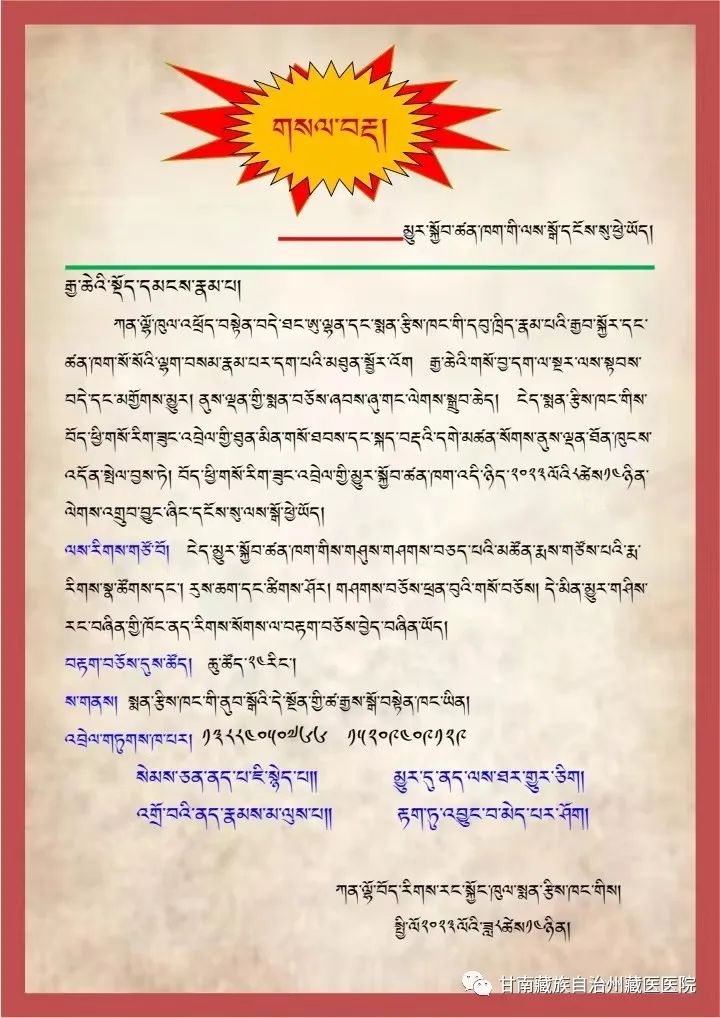 གསལ་བརྡ།
མྱུར་སྐྱོབ་ཚན་ཁག་གི་ལས་སྒོ་དངོས་སུ་ཕྱེ་ཡོད།
རྒྱ་ཆེའི་སྡོད་དམངས་རྣམ་པ།
ཀན་ལྷོ་ཁུལ་འཕྲོད་བསྟེན་བདེ་ཐང་ཨུ་ལྷན་དང་སྨན་རྩིས་ཁང་གི་དབུ་ཁྲིད་རྣམ་པའི་རྒྱབ་སྐྱོར་དང་
ཚན་ཁག་སོ་སོའི་ལྷག་བསམ་རྣམ་པར་དག་པའི་མཐུན་སྦྱོར་འོག རྒྱ་ཆེའི་གསོ་བྱ་དག་ལ་སྔར་ལས་སྟབས་
བདེ་དང་མགྱོགས་མྱུར། ནུས་ལྡན་གྱི་སྨན་བཅོས་ཞབས་ཞུ་གང་ལེགས་སྒྲུབ་ཆེད། ངེད་སྨན་རྩིས་ཁང་གིས་
བོད་ཕྱི་གསོ་རིག་ཟུང་འབྲེལ་གྱི་ཐུན་མིན་གསོ་ཐབས་དང་སྐད་བརྡའི་དགེ་མཚན་སོགས་ནུས་ལྡན་ཐོན་ཁུངས་
འདོན་སྤེལ་བྱས་ཏེ། བོད་ཕྱི་གསོ་རིག་ཟུང་འབྲེལ་གྱི་མྱུར་སྐྱོབ་ཚན་ཁག་འདི་ཉིད་༢༠༢༣ལོའི་༨ཚེས༡༤ཉིན་
ལེགས་འགྲུབ་བྱུང་ཞིང་དངོས་སུ་ལས་སྒོ་ཕྱེ་ཡོད།
ལས་རིགས་གཙོ་བོ། ངེད་མྱུར་སྐྱོབ་ཚན་ཁག་གིས་གཤུས་གཤགས་བཅད་པའི་མཚོན་རྨས་གཙོས་པའི་རྨ་
རིགས་སྣ་ཚོགས་དང་། རུས་ཆག་དང་ཚིགས་ཤོར། གཤགས་བཅོས་ཕྲན་བུའི་གསོ་བཅོས། དེ་མིན་མྱུར་གཤིས་
རང་བཞིན་གྱི་ཁོང་ནད་རིགས་སོགས་ལ་བརྟག་བཅོས་བྱེད་བཞིན་ཡོད།
བརྟག་བཅོས་དུས་ཚོད། ཆུ་ཚོད་༢༤རིང་།
ས་གནས། སྨན་རྩིས་ཁང་གི་ནུབ་སྒོའི་དེ་སྔོན་གྱི་ཚ་རྒྱས་སྒོ་བསྟེན་ཁང་ཡིན།
འབྲེལ་གཏུགས་ཁ་པར། ༡༣༨༨༤༠༥༠༧༦༦ ༡༥༢༠༩༤༠༩༡༢༩
སེམས་ཅན་ནད་པ་ཇི་སྙེད་པ།། མྱུར་དུ་ནད་ལས་ཐར་གྱུར་ཅིག།
འགྲོ་བའི་ནད་རྣམས་མ་ལུས་པ།། རྟག་ཏུ་འབྱུང་བ་མེད་པར་ཤོག།
ཀན་ལྷོ་བོད་རིགས་རང་སྐྱོང་ཁུལ་སྨན་རྩིས་ཁང་གིས།
སྤྱི་ལོ༢༠༢༣ལོའི་ཟླ༨ཚེས༡༤ཉིན།
甘南藏族自治州藏医医院